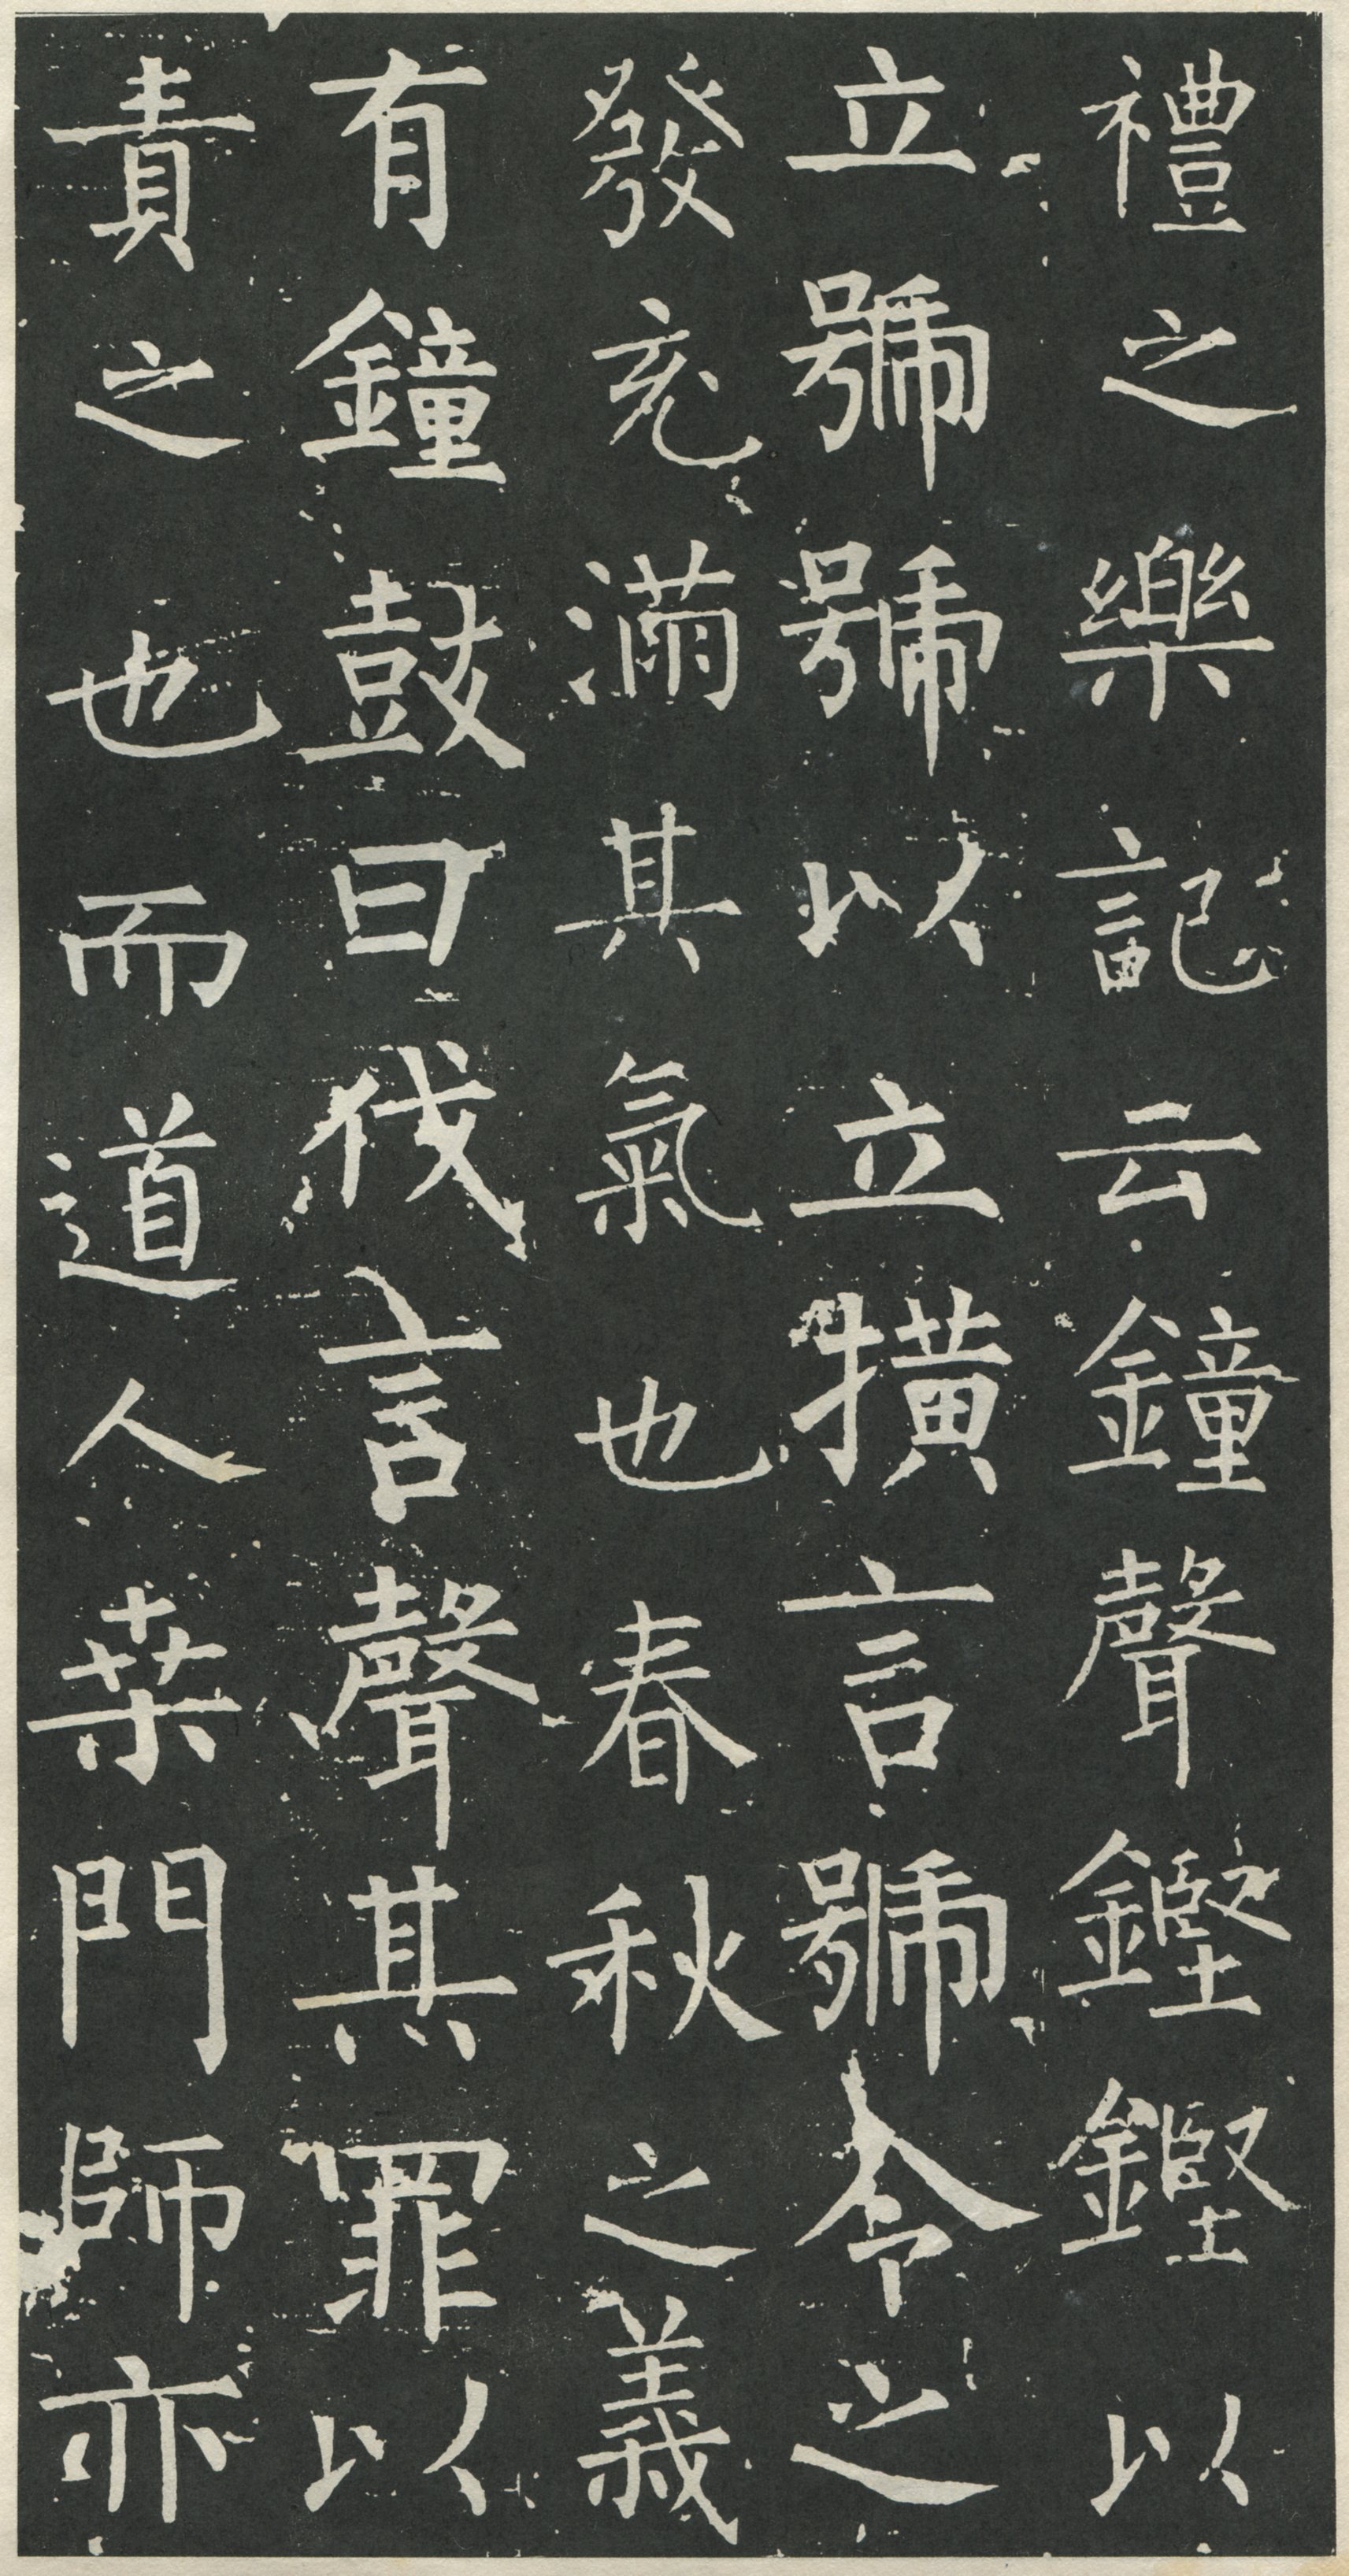 禮之樂記云鐘聲鏗鏗以
立號號以立橫言號令之
發充滿其氣也春秋之義
有鐘鼓曰伐言聲其罪以
責之也而道人桒門師亦